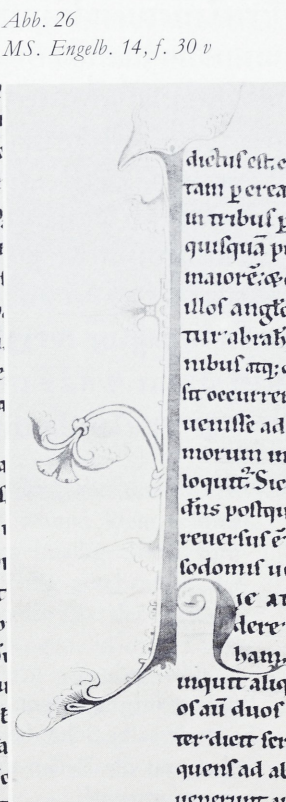 Abb. 26
MS. Engelb. 14, f. 30 v
dictuſ eſt; e
tam p erea
in tribuſ p
quiſquā p
maiorē; &
illoſ angl
tur abrah
nibuſ atq; 
ſit occurre
ueniſſe ad
morum in
loquit᷑. Sic
dn̄s poſtqu
reuerſuſ ē
ſodomiſ u
dere
ham,
inquit aliq
oſ aū duoſ
ter dicit ſcr
quenſ ad ab
uenerunt